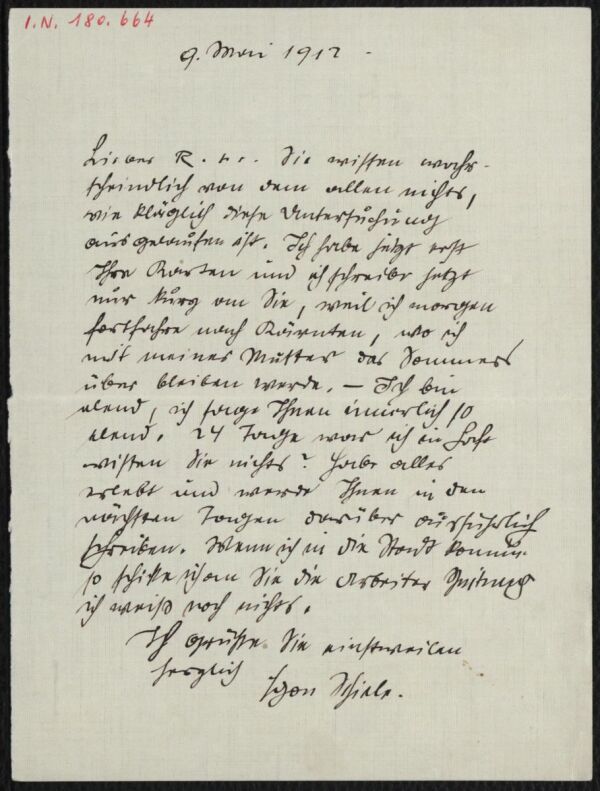 I.N. 180.664
9. Mai 1912 -
Lieber R. v. Sie wissen wahr-
scheindlich von dem allen nichts,
wie kläglich diese Untersuchung
ausgelaufen ist. Ich habe jetzt erst
Ihre Karten und ich schreibe jetzt
nur kurz an Sie, weil ich morgen
fortfahre nach Kärnten, wo ich
mit meiner Mutter das Sommers
über bleiben werde. – Ich bin
elend, ich sage Ihnen innerlich so
elend. 24 Tage war ich in Haft
wissen Sie nichts? Habe alles
erlebt und werde Ihnen in den
nächsten Tagen darüber ausführlich
schreiben. Wenn ich in die Stadt komme
so schicke ich an Sie die Arbeiter Zeitung
ich weiß noch nichts.
Ich grüße Sie einstweilen
herzlich
Egon Schiele.